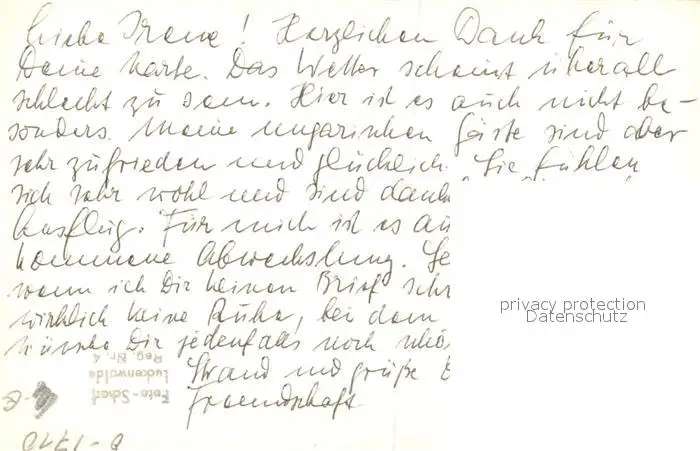 Liebe Irene! Herzlichen Dank für
Deine Karte. Das Wetter scheint überall
schlecht zu sein. Hier ist es auch nicht be-
sonders. Meine ungarischen Gäste sind aber
sehr zufrieden und glücklich. Sie fühlen
sich sehr wohl und sind
Ausflug. Für mich ist es
kommene Abwechslung.
wenn ich Dir keinen Brief
wirklich keine Ruhe, bei dem
wünsche Dir jedenfalls noch
Strand und grüße
Freundschaft
privacy protection
Datenschutz
Foto-Scharf
Luckenwalde
Reg. Nr. 4